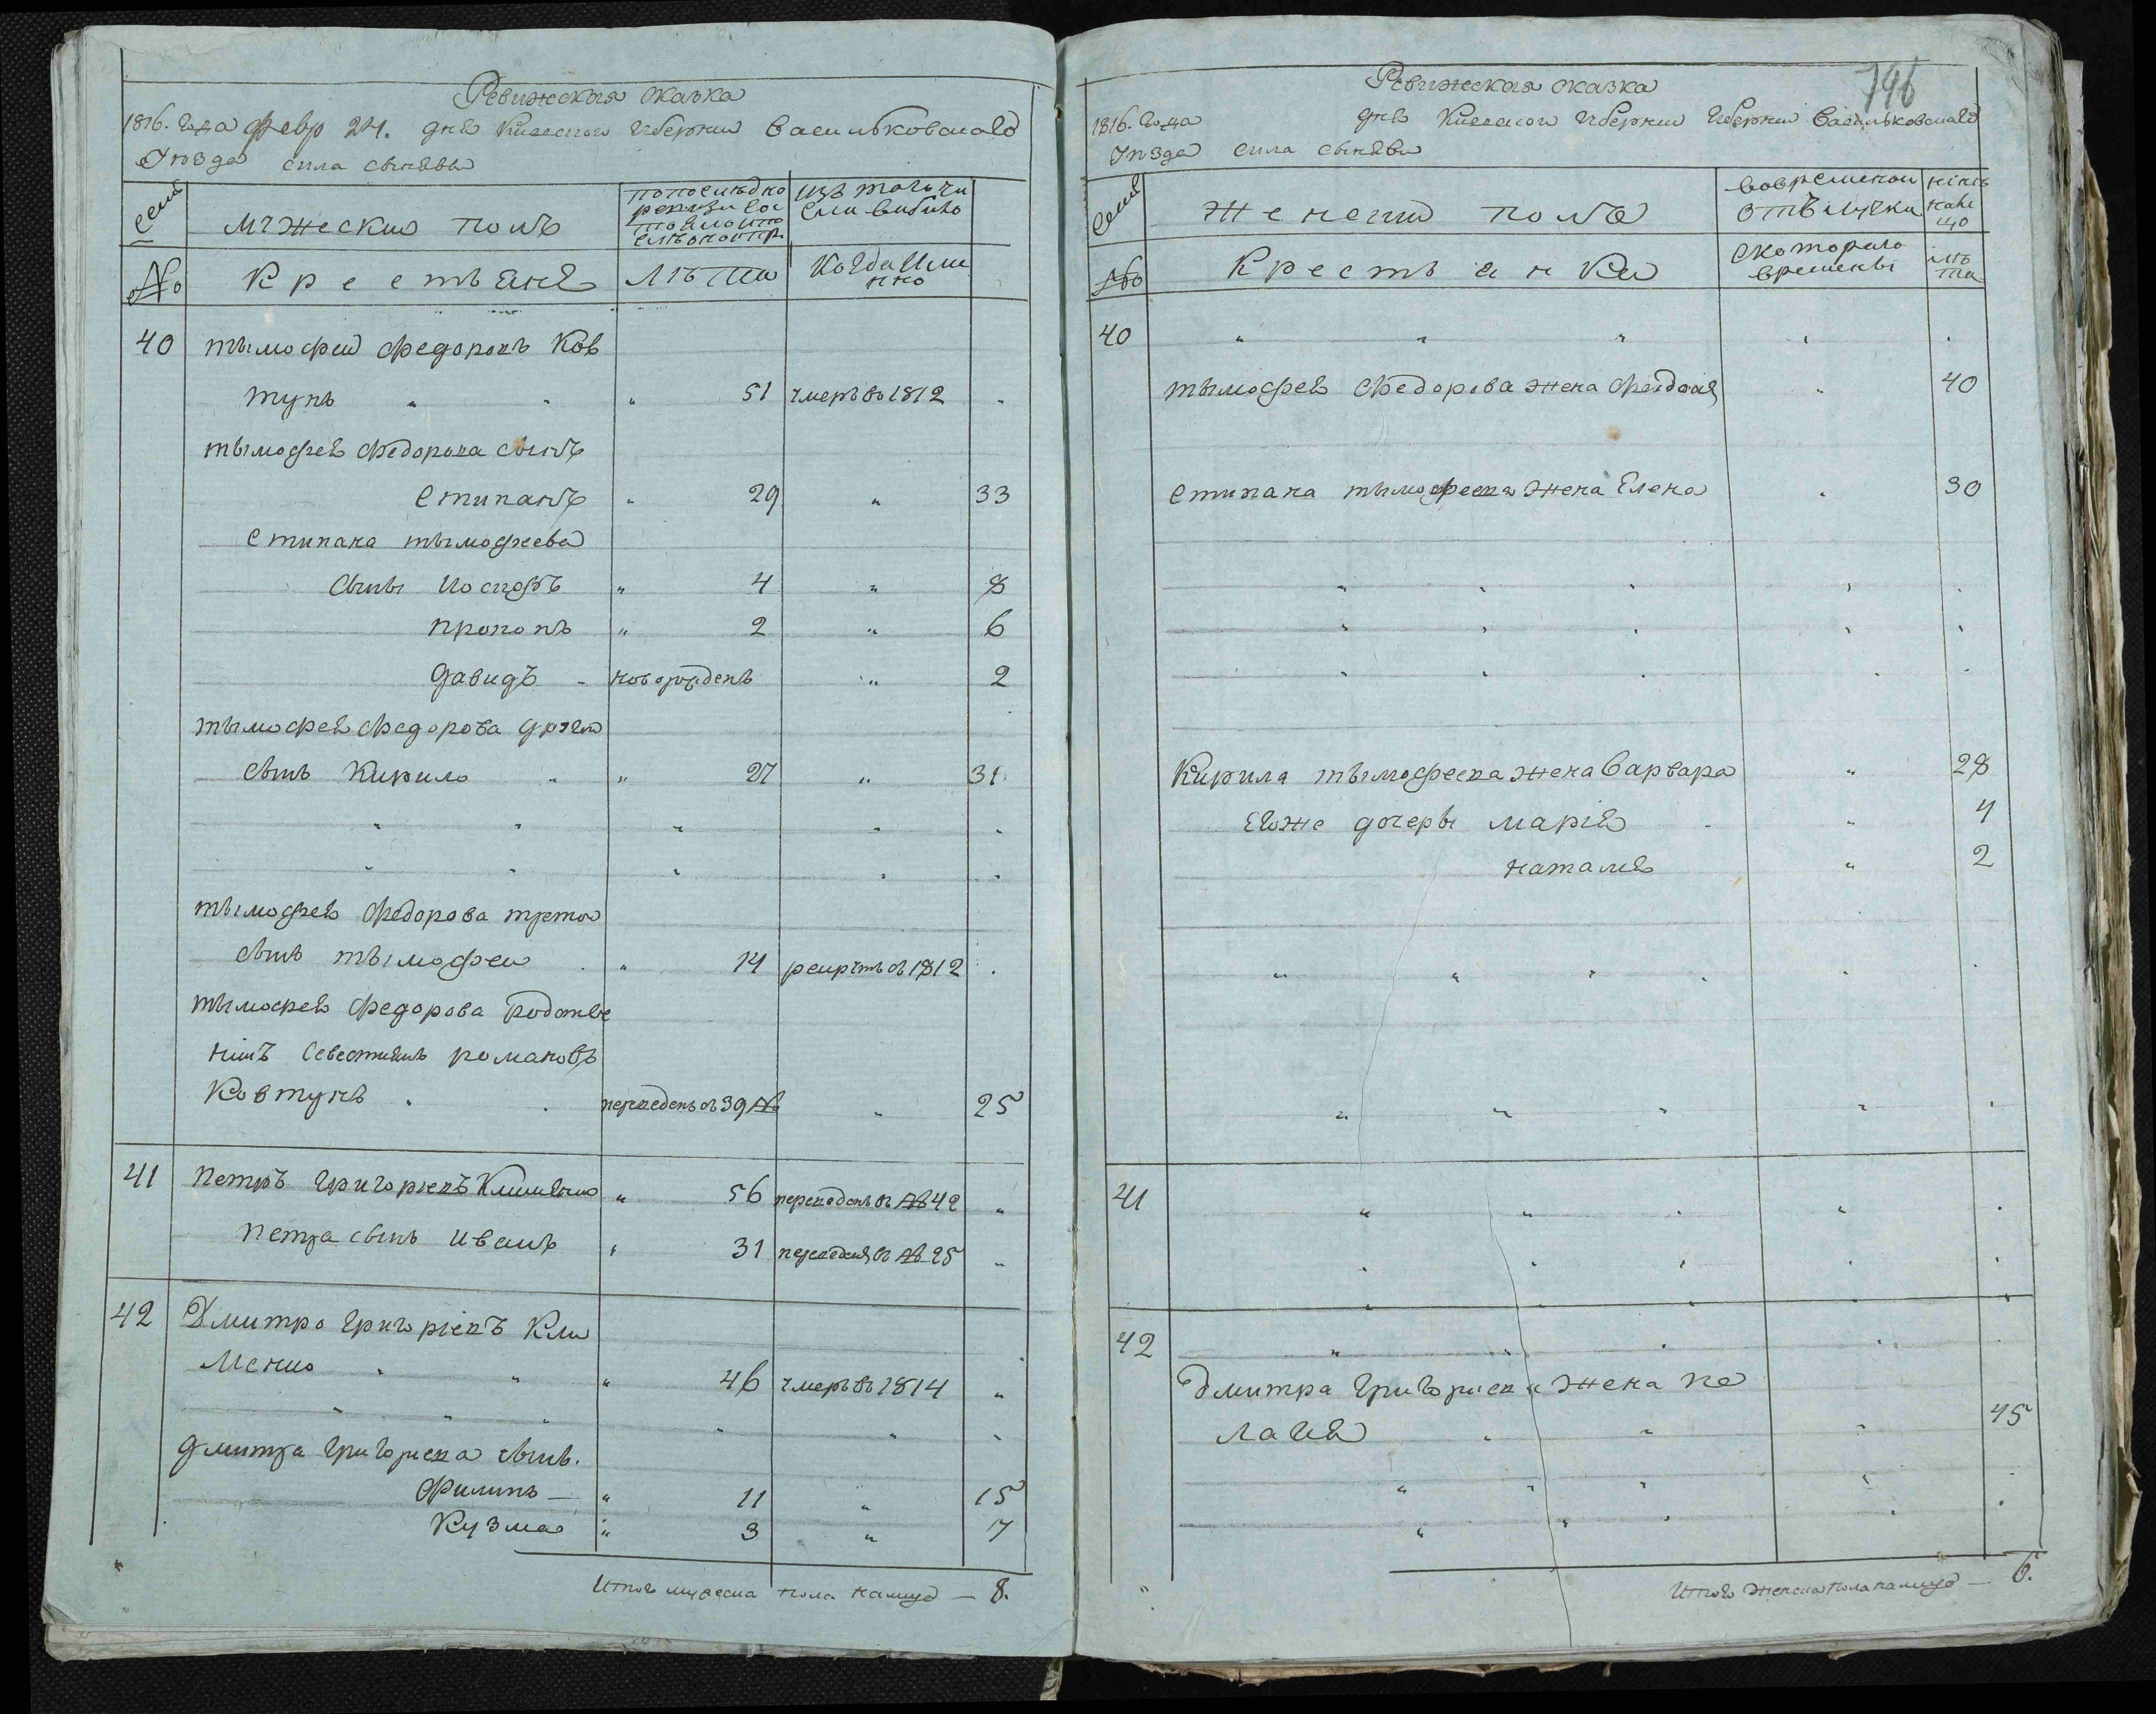 Ревижская сказка
1816. Года Февр 24. дня Киевской Губернии Васильковского
Уезда села сыневы
Семьи
Мужеский полъ
по последней
ревизии сос
тояло и по
Изъ того чи
сла выбыло
№
Крестьяне
Лета
Когда Име
нно
40 тымофей Федоровъ Ков
тунъ " " " 51 умеръ въ 1812 "
тымофея Федорова сынъ
Степанъ " 29 " 33
Степана тымофеева
сыны Иосифъ " 4 " 8
Прокопъ " 2 " 6
Давидъ новорожденъ " 2
тымофея Федорова другой
сынъ Кирило " " 27 " 31
" " " " "
" " " " "
тымофея Федорова третой
сынъ тымофей " 14 рекрутъ въ 1812
тымофея Федорова родстве
нникъ Севестиянъ романовъ
Ковтунъ переведенъ съ 39 № " 25
41 Петръ Григориевъ Клименко " 56 переведенъ въ № 42 "
Петра сынъ Иванъ " 31 переведенъ въ № 25 "
42 Дмитро Григориевъ Кли
менко " " " 46 умеръ въ 1814 "
" " " " " "
Дмитра Григориева сынъ.
Филипъ — " 11 " 15
Кузма " 3 " 7
Итого мужеска пола налицо — 8.
796
Ревижская сказка
1816. Года дня Киевской Губернии Губернии Васильковского
Уезда села сыневы
Семьи
Женский полъ
Вовременной
отълучки
ныне
нали
цо
№
Крестьянки
Скоторого
времены
лета
40 " " " " "
тымофея Федорова жена " 40
Степана тымофеева жена Елена " 30
" " " " "
" " " " "
" " " " "
Кирила тымофеева жена Варвара " 28
Егоже дочеры Мария " 4
наталия " 2
" " " " "
" " " " "
41 " " " " "
" " " " "
" " " " "
42 " " " " "
Дмитра Григориева жена Пе
лагия " " " 45
" " " " "
" " " " "
Итого женска пола налицо — 6.